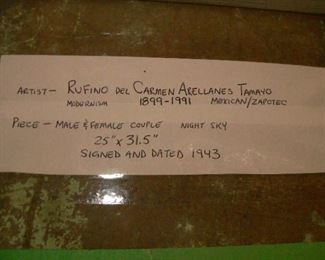 ARTIST - RUFINO DEL CARMEN ARELLANES TAMAYO
MODERNISM 1899-1991 MEXICAN/ZAPOTEC
PIECE - MALE & FEMALE COUPLE NIGHT SKY
25" x 31.5"
SIGNED AND DATED 1943